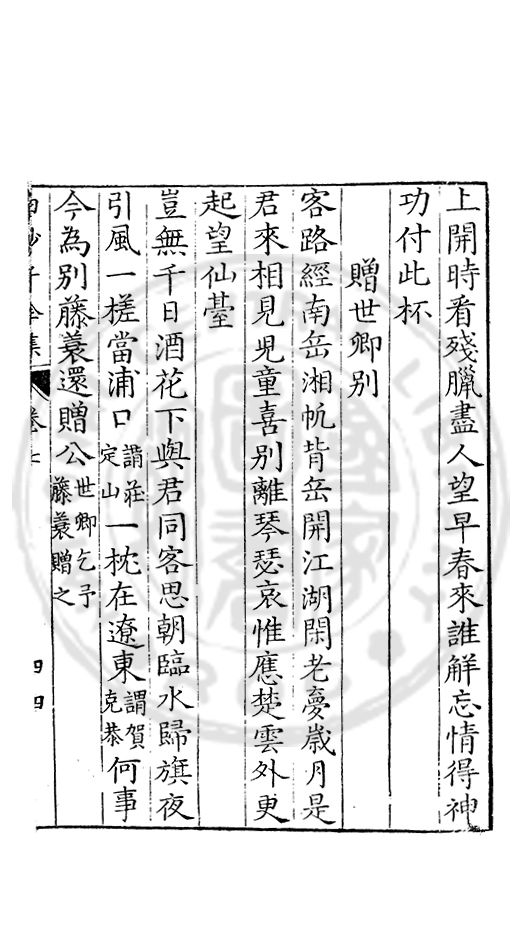 上開時看殘臘盡人望早春來誰解忘情得神
功付此杯
贈世卿別
客路經南岳湘帆背岳開江湖閑老夢歲月是
君來相見兒童喜別離琴瑟哀惟應楚雲外更
起望仙臺
豈無千日酒花下與君同客思朝臨水歸旗夜
引風一槎當浦口謂莊定山一枕在遼東謂賀克恭何事
今為別藤蓑還贈公世卿乞予藤蓑贈之
卷七
四四